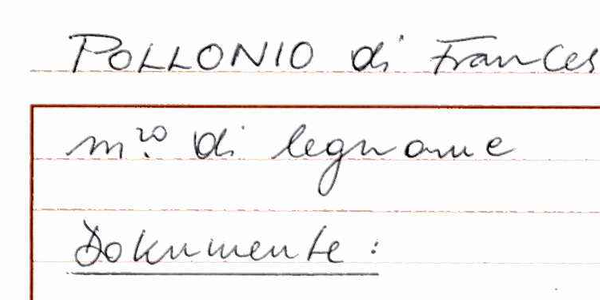 POLLONIO di Frances
m.ro di legname
Dokumente: